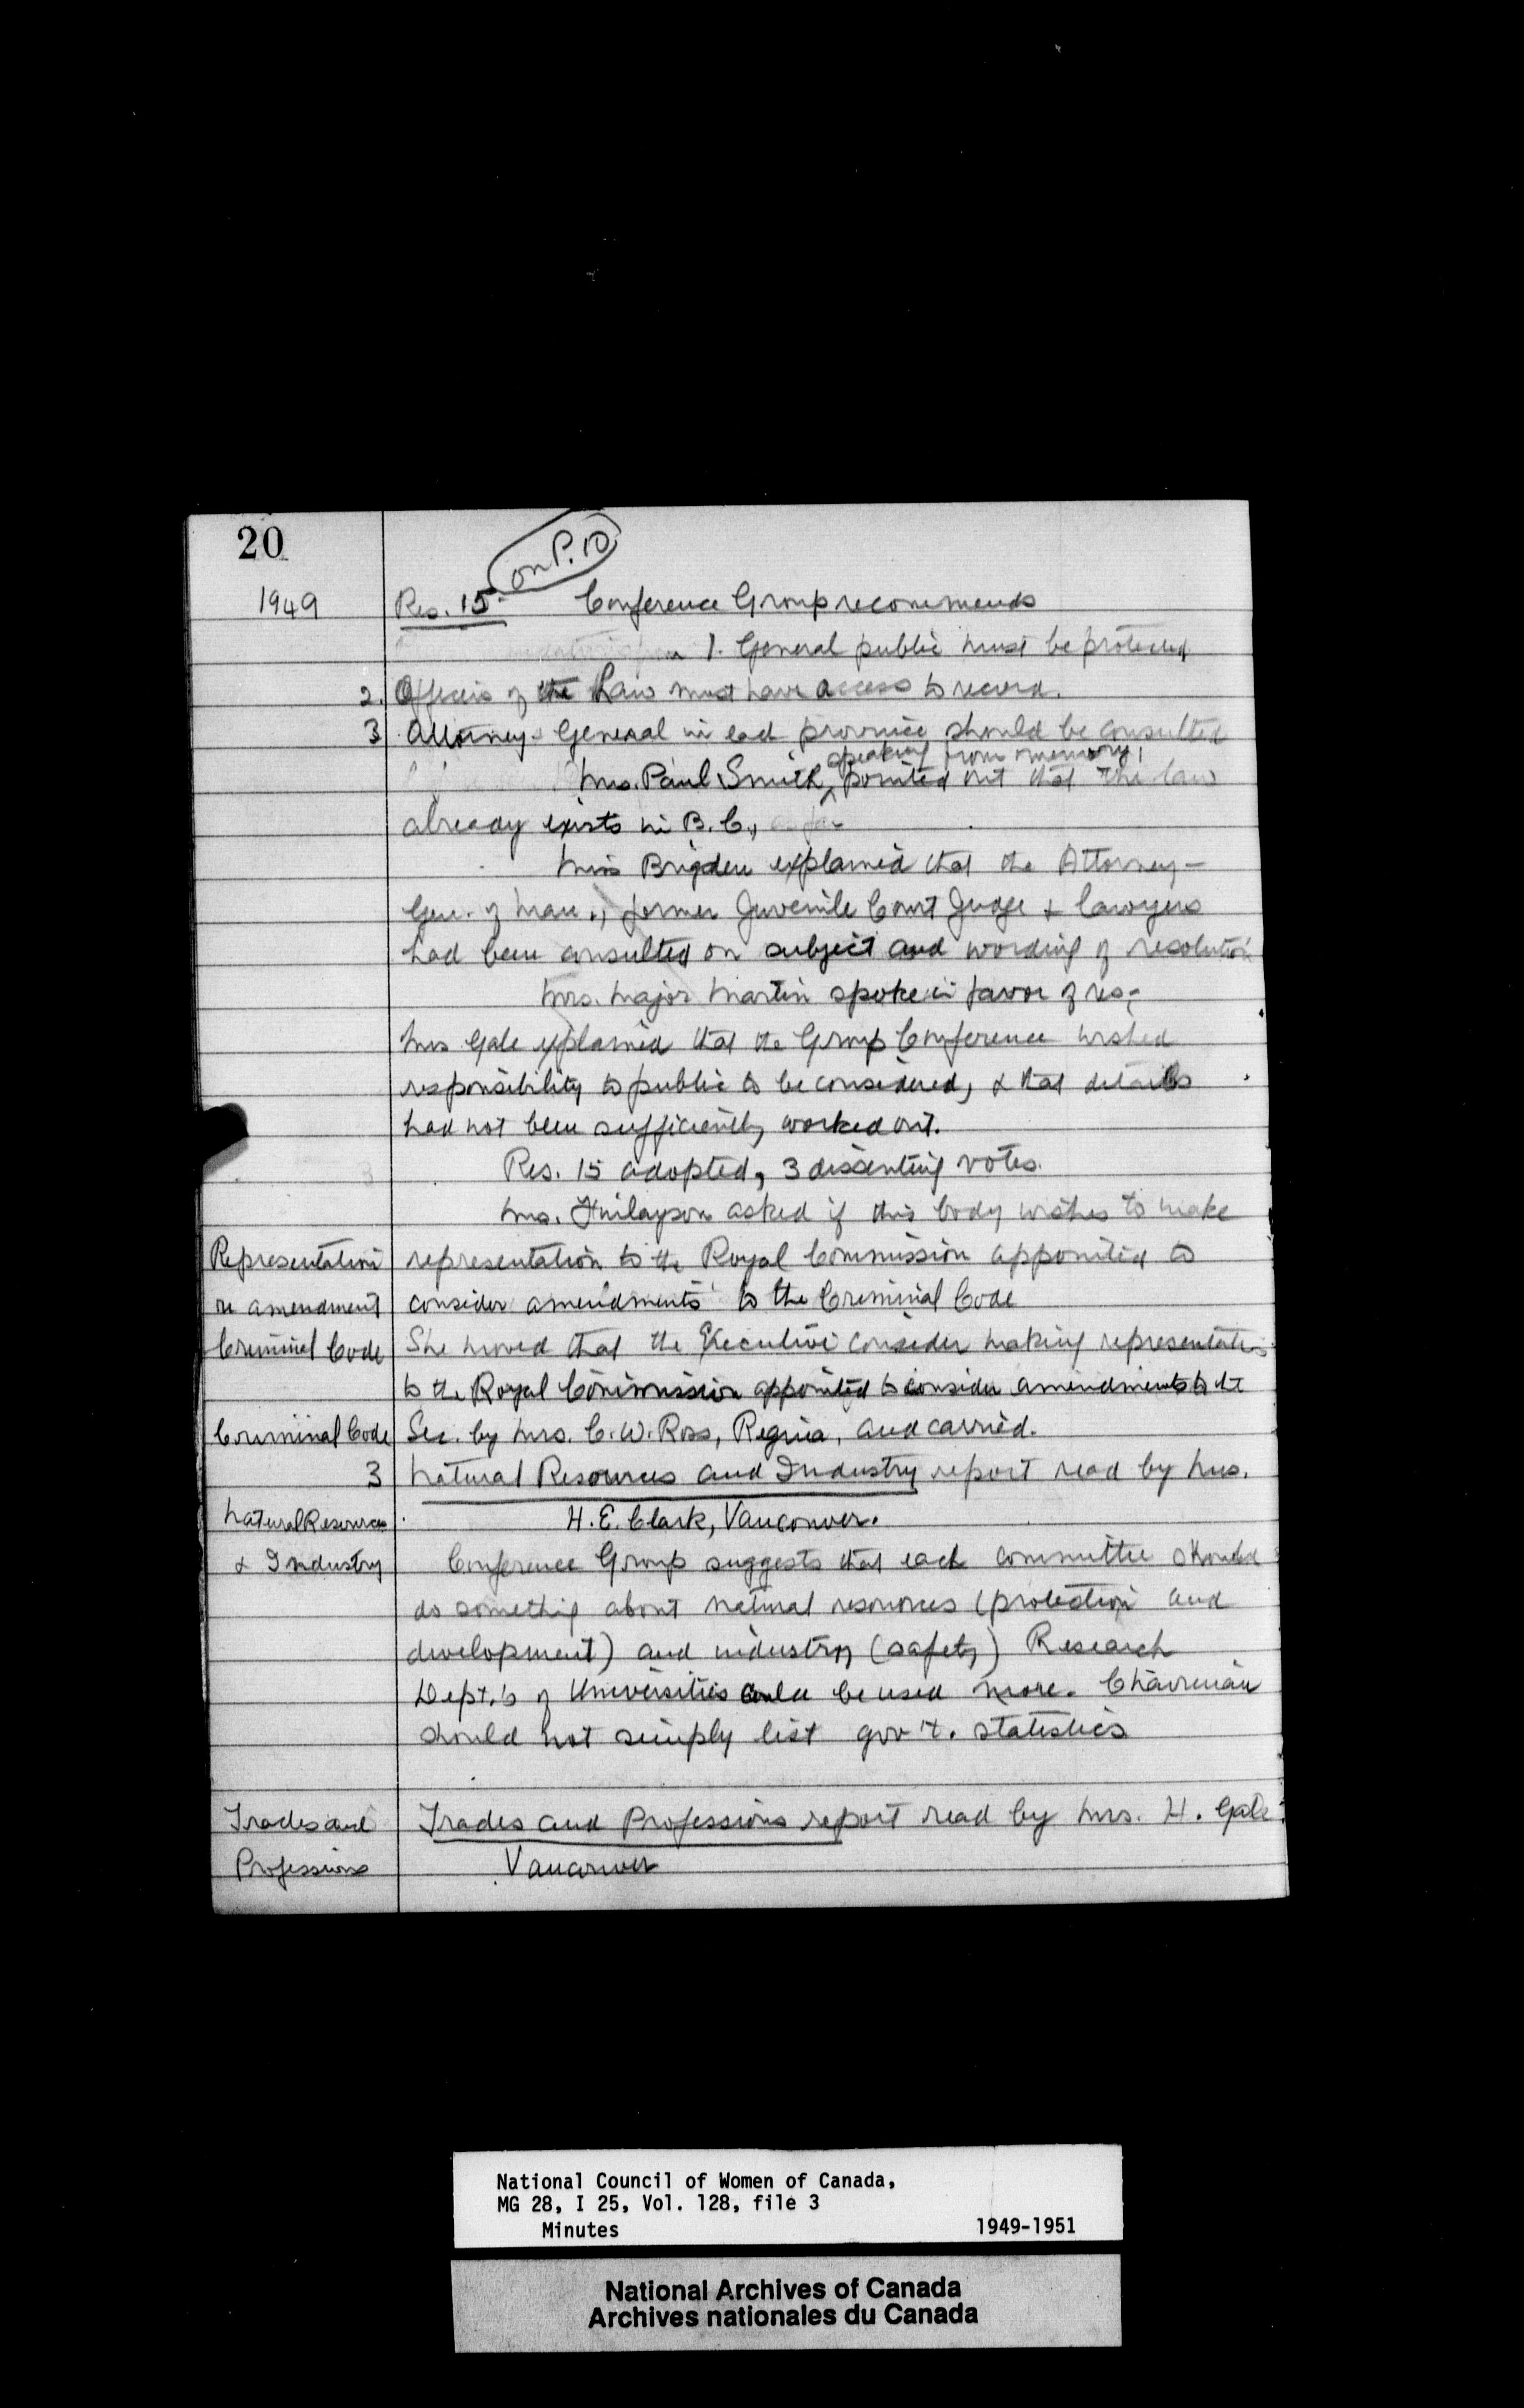 20
on P. 10
1949 Res. 15. Conference Group recommends
1. General public must be protected
2. Officers of the Law must have access to record.
3 Attorney-General in each province should be consulted
speaking from memory,
Mrs. Paul Smith, pointed out that the law
already exists in B.C.,
Miss Brigden explained that the Attorney-
Gen. of Man., former Juvenile Court Judge & lawyers
had been consulted on subject and wording of resolution
Mrs. Major Martin spoke in favor of res.
Mrs Gale explained that the Group Conference wished
responsibility to public to be considered, & that details
had not been sufficiently worked out.
Res. 15 adopted, 3 dissenting votes.
Mrs. Finlayson asked if this body wishes to make
Representation representation to the Royal Commission appointed to
re amendment consider amendments to the Criminal Code
Criminal Code She moved that the Executive consider making representation
to the Royal Commission appointed to consider amendments to the
Criminal Code Sec. by Mrs. C. W. Ross, Regina, and carried.
3 Natural Resources and Industry report read by Mrs.
Natural Resources H. E. Clark, Vancouver.
& Industry Conference Group suggests that each committee should
do something about natural resources (protection and
development) and industry (safety) Research
Dept.'s of Universities could be used more. Chairman
should not simply list gov't. statistics
Trades and Trades and Professions report read by Mrs. H. Gale
Professions Vancouver
National Council of Women of Canada,
MG 28, I 25, Vol. 128, file 3
Minutes 1949-1951
National Archives of Canada
Archives nationales du Canada